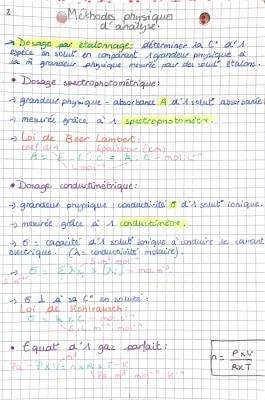 2
Méthodes physiques
d'analyse.
→ Dosage par étalonnage: détermine la C° d'1
espèce en solut° en comparant 1 grandeur physique à
la m̂ grandeur physique mesurée pour des solut° étalons.
• Dosage spectrophotométrique:
→ grandeur physique = absorbance A d'1 solut° absorbante
→ mesurée grâce à 1 spectrophotomètre.
→ Loi de Beer Lambert:
• Dosage conductimétrique:
→ grandeur physique: conductivité σ d'1 solut° ionique.
→ mesurée grâce à 1 conductimètre.
→ σ = capacité d'1 solut° ionique à conduire le courant
électrique. (λ = conductivité molaire).
→ σ = Σ
→ σ à sa C° en soluté:
Loi de Kohlrausch:
• Equat° d'1 gaz parfait:
n = P x V
R x T